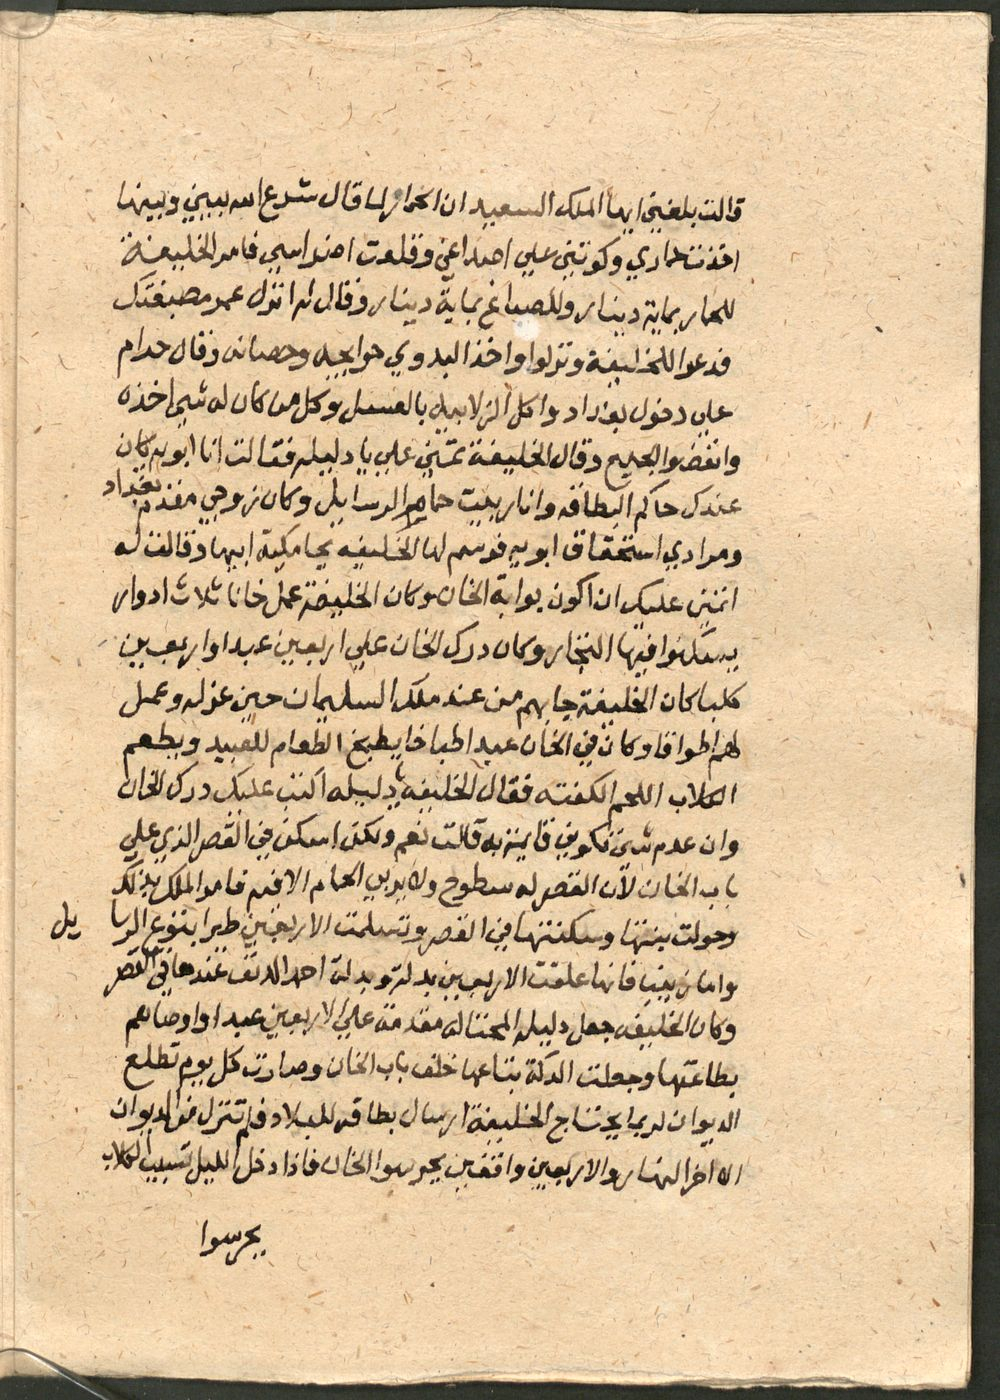 قالت بلغني ايها الملك السعيد ان الحمار لما قال شرع الله بيني وبينها
اخذت حماري وكوتني علي اصداغي وقلعت اضراسي فامر الخليفة
للحمار بماية دينار وللصباغ بماية دينار وقال له انزل عمر مصبغتك
فدعوا للخليفة ونزلوا واخذ البدوي حوايجه وحصانه وقال حرام
علي دخول بغداد واكل الزلابيه بالعسل وكل من كان له شي اخذه
وانفضوا الجميع وقال الخليفة تمني علي يا دليله فقالت انا ابويه كان
عندك حاكم البطاقه وانا ربيت حمام الرسايل وكان زوجي مقدم بغداد
ومرادي استحقاق ابويه فرسم لها الخليفه بجامكية ابيها وقالت له
اتمني عليك ان اكون بوابة الخان وكان الخليفة عمل خانا ثلاث ادوار
يسكنوا فيها التجار وكان درك الخان علي اربعين عبدا واربعين
كلبا كان الخليفة جابهم من عند ملك السليمان حين عزله وعمل
لهم اطواقا وكان في الخان عبد اطباخا يطبخ الطعام للعبيد ويطعم
الكلاب اللحم الكفته فقال الخليفه يا دليله اكتب عليك درك الخان
وان عدم شي تكوني قايمة به قالت نعم ولكن اسكن في القصر الذي علي
باب الخان لأن القصر له سطوح ولا يربي الحمام الا فيه فامر الملك بذلك
وحولت بنتها وسكنتها في القصر وتسلمت الاربعين طيرا بتوع الرسا يل
واما زينب فانها علقت الاربعين بدلة وبدلة احمد الدنف عندها في القصر
وكان الخليفه جعل دليله المحتاله مقدمة علي الاربعين عبدا واوصاهم
بطاعتها وجعلت الدكة بتاعها خلف باب الخان وصارت كل يوم تطلع
الديوان لربما يحتاج الخليفة ارسال بطاقه للبلاد فلم تنزل من الديوان
الا اخر النهار والاربعين واقفين يحرسوا الخان فاذا دخل الليل تسيب الكلاب
يحرسوا